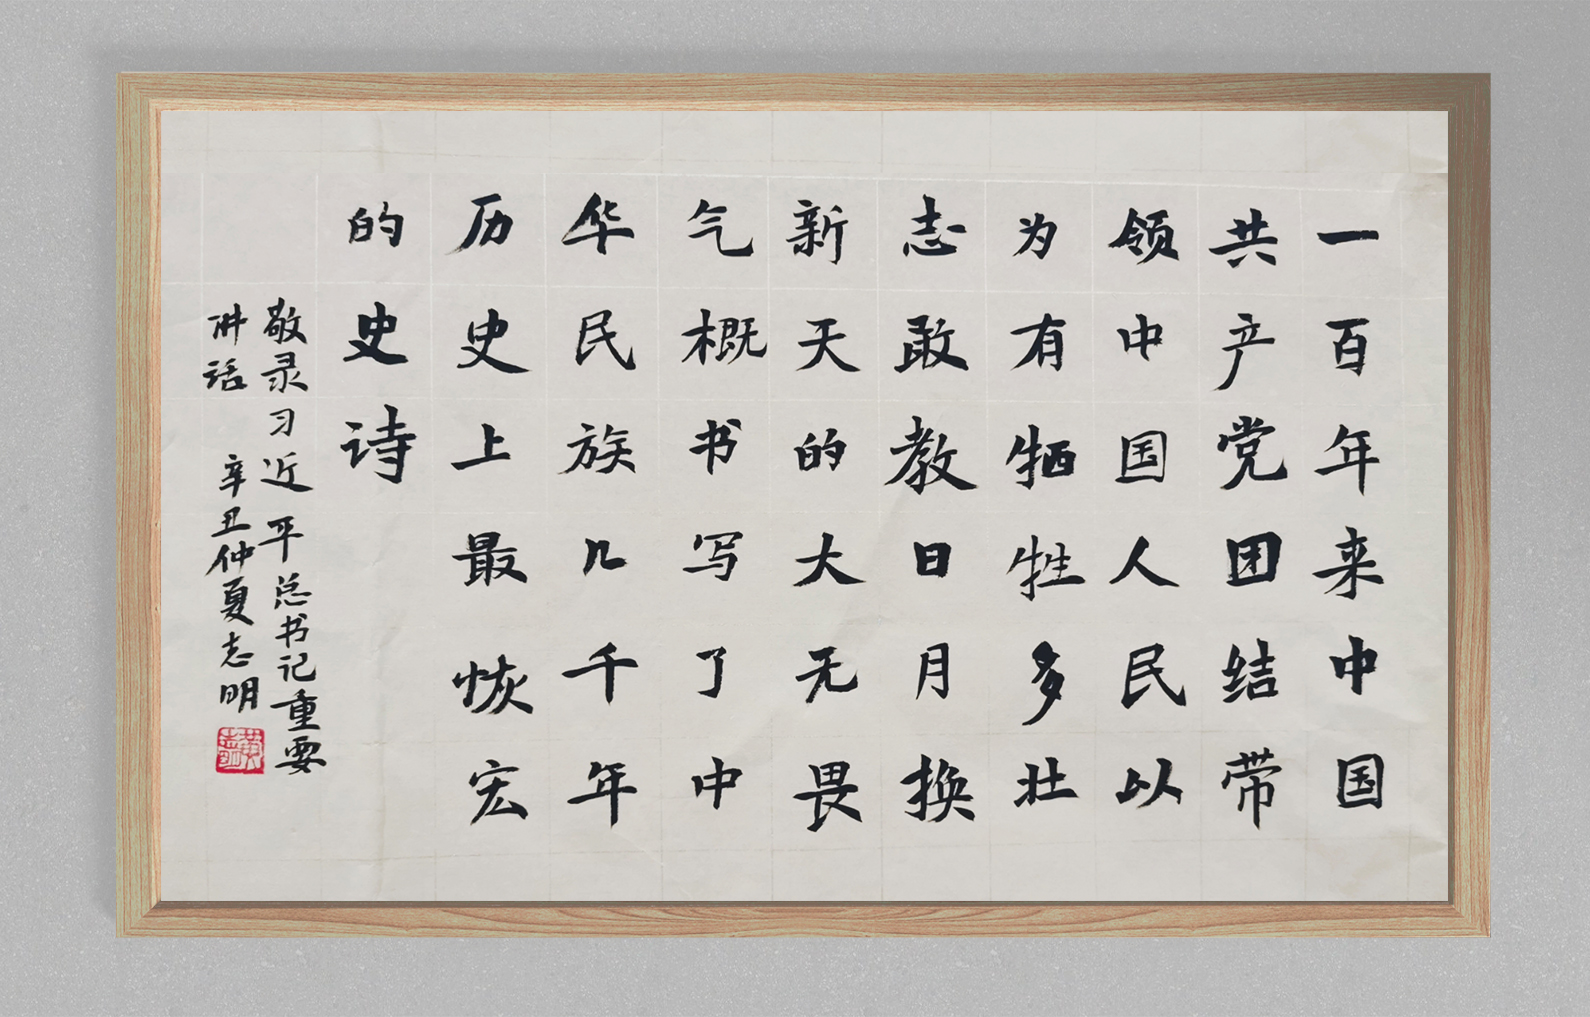 一百年来中国
共产党团结带
领中国人民以
为有牺牲多壮
志敢教日月换
新天的大无畏
气概书写了中
华民族几千年
历史上最恢宏
的史诗
敬录习近平总书记重要
讲话 辛丑仲夏志明